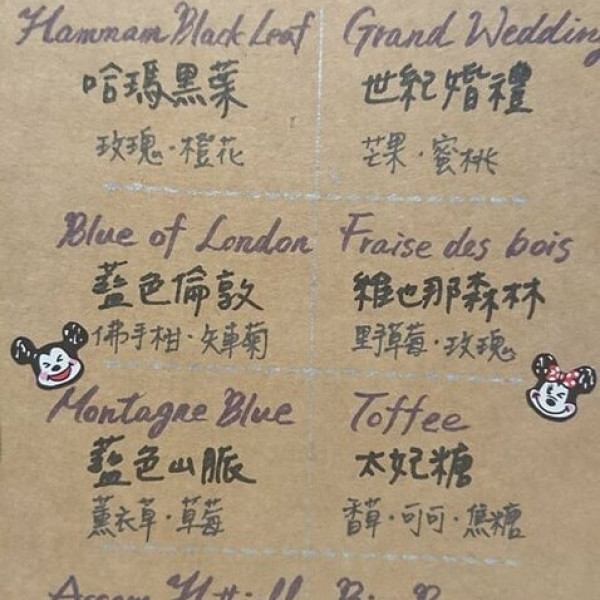 Hammam Black Leaf
哈瑪黑葉
玫瑰·橙花
Grand Wedding
世紀婚禮
芒果·蜜桃
Blue of London
藍色倫敦
佛手柑·矢車菊
Fraise des bois
維也那森林
野草莓·玫瑰
Montagne Blue
藍色山脈
薰衣草·草莓
Toffee
太妃糖
香草·可可·焦糖